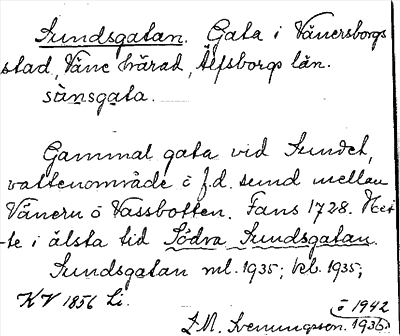 Sundsgatan. Gata i Vänersborgs
stad, Väne härad, Älfsborgs län.
sánsgata.
Gammal gata vid Sundet,
vattenområde ô f.d. sund mellan
Vänern ô Vassbotten. Fans 1728. Het-
-te i älsta tid Södra Sundsgatan.
Sundsgatan ml. 1935; kb. 1935;
KV 1856 Li.
ô 1942
D.N. Svenungson. 1936.